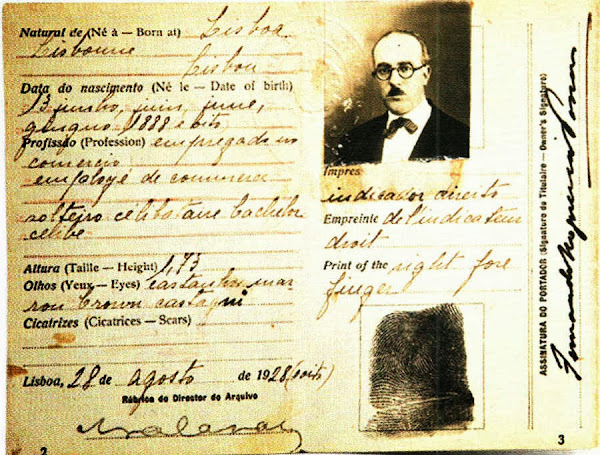 Natural de (Né à — Born at) Lisboa
Lisbonne
Lisbon
Data do nascimento (Né le — Date of birth)
13 junho, juin, june,
giugno 1888 e oito
Profissão (Profession) empregado no
comercio
employé de commerce
solteiro célibataire bachelor
celibe
Altura (Taille — Height) 1,73
Olhos (Yeux — Eyes) castanhos mar
ron brown castagni
Cicatrizes (Cicatrices — Scars)
Lisboa, 28 de agosto de 1928 (oito)
Rúbrica do Director do Arquivo
2
Impres
indicador direito
Empreinte de l'indicateur
droit
Print of the right fore
finger
3
ASSINATURA DO PORTADOR (Signature du Titulaire — Owner's Signature)
Fernando Nogueira Pessoa